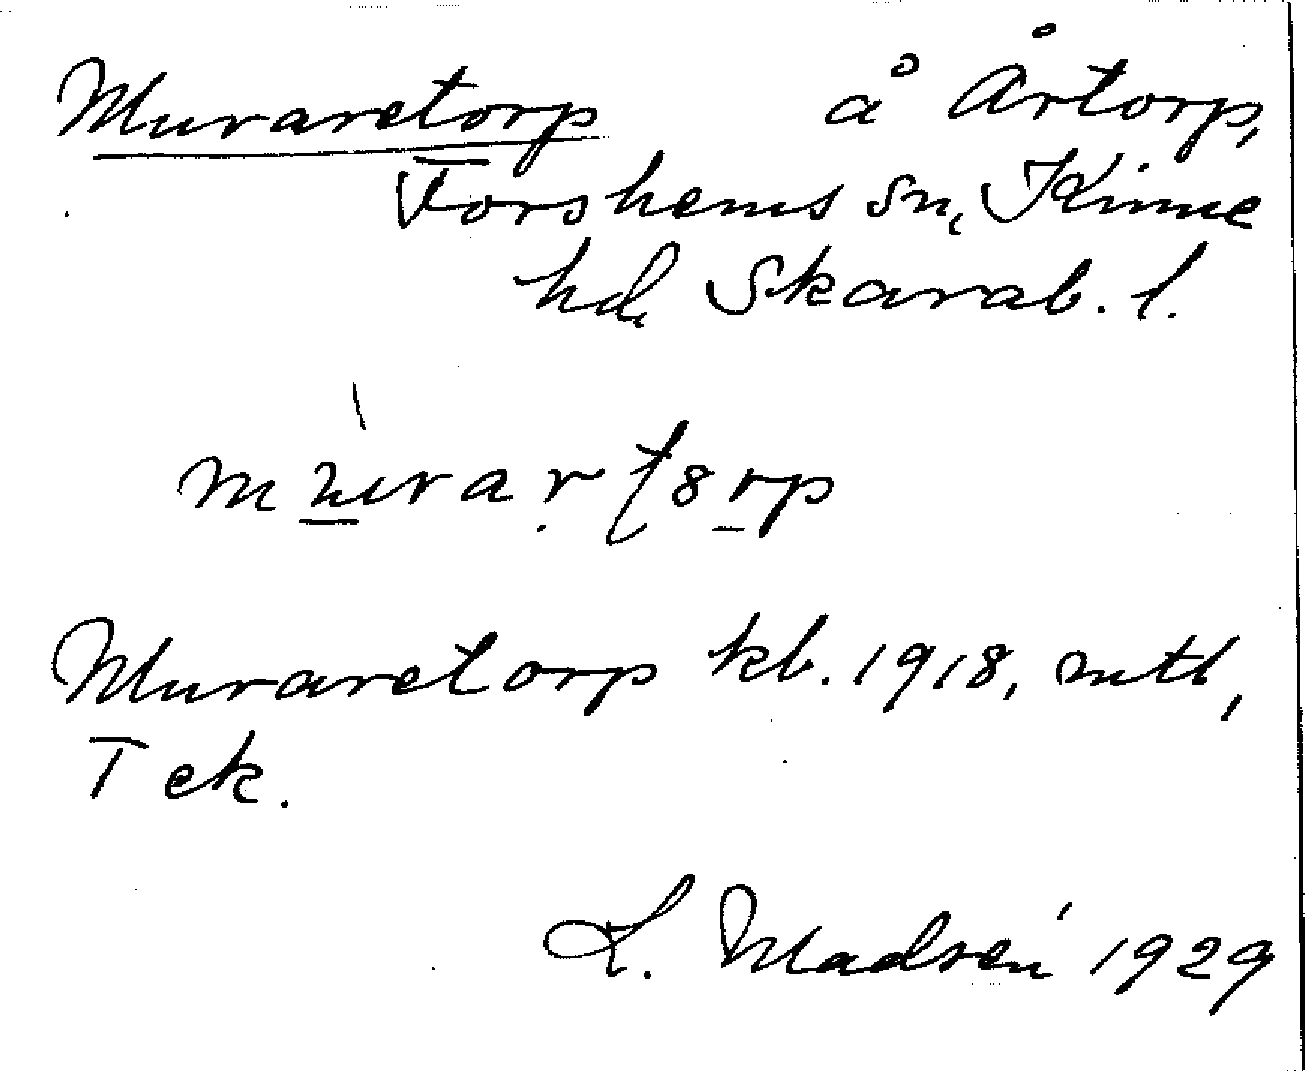 Muraretorp å Årtorp,
Forshems sn, Kinne
hd, Skarab. l.
Muraretorp kb. 1918, mtl,
T ek.
L. Madsén 1929